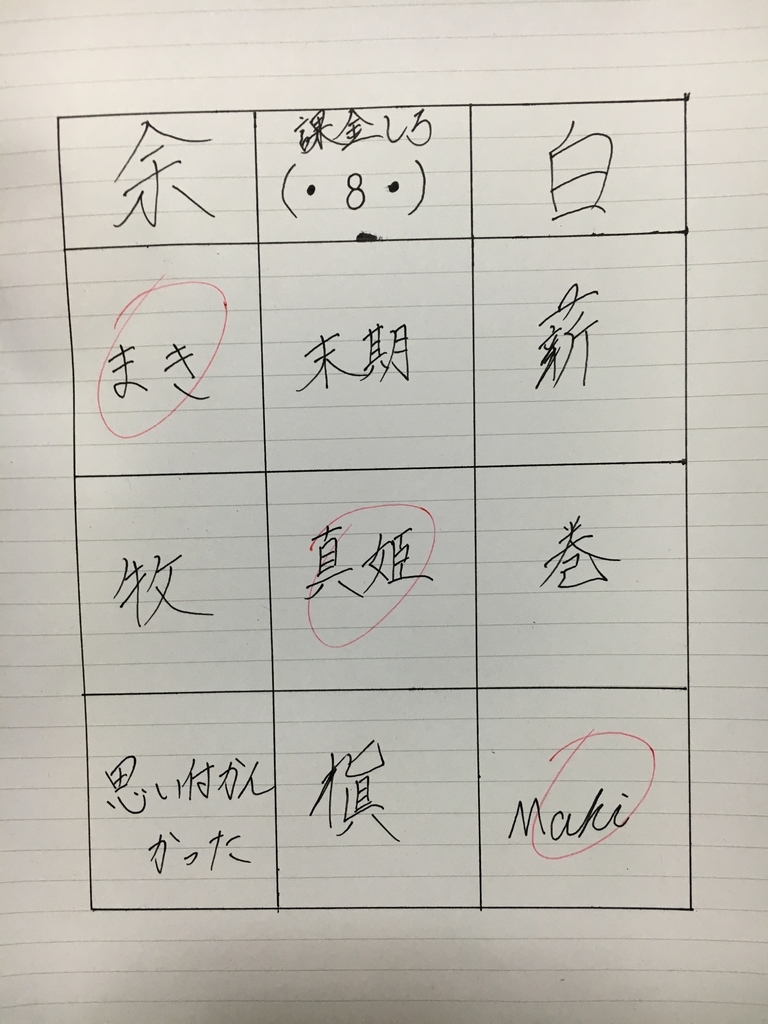 余
課金しろ
(・8・)
白
まき
末期
薪
牧
真姫
巻
思い付かん
かった
槇
Maki